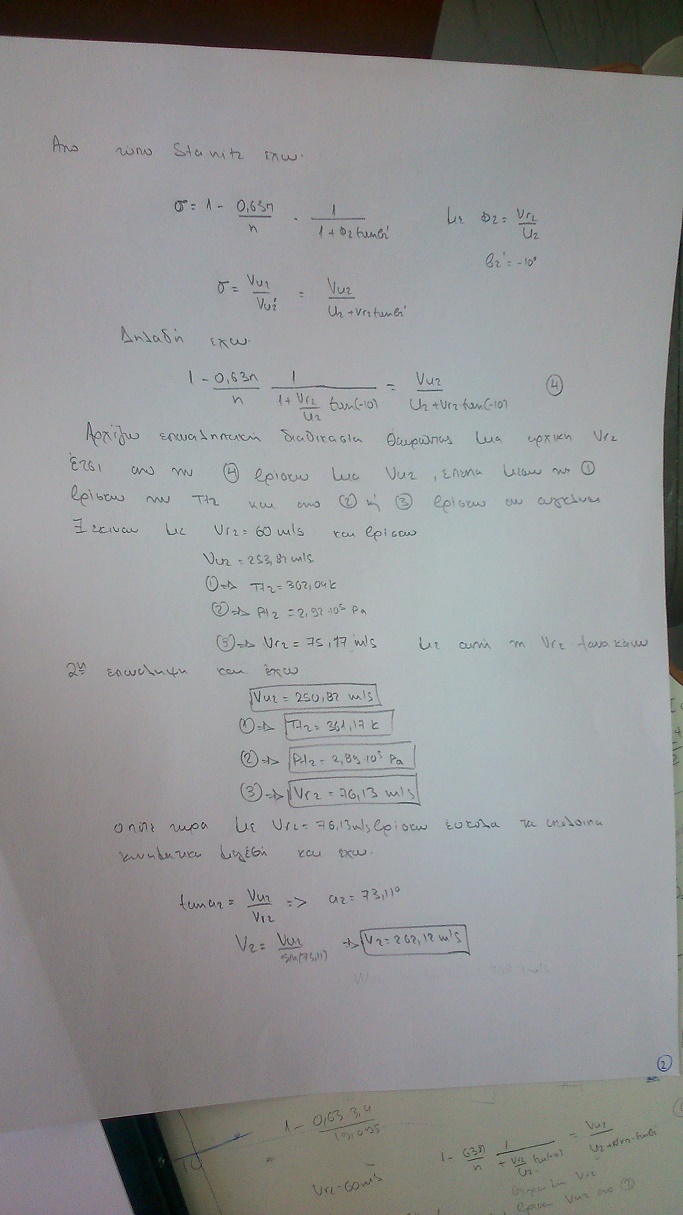 Απο τυπο Stanitz εχω.
σ = 1 - 0,63π/n · 1/(1+Φ2 tanβ2') με Φ2 = Vr2/U2
β2' = -10°
σ = Vu2/Vu2' = Vu2/(U2+Vr2 tanβ2')
Δηλαδή εχω.
1 - 0,63π/n 1/(1+Vr2/U2 tan(-10)) = Vu2/(U2+Vr2 tan(-10)) ④
Αρχίζω επαναληπτική διαδικασία θεωρώντας μια αρχικη Vr2
Ετσι απο την ④ βρισκω μια Vu2, επειτα μεσω της ①
βρισκω την Tt2 και απο ② ή ③ βρισκω
Ξεκιναω με Vr2 = 60 m/s και βρισκω
Vu2 = 253,82 m/s
① => Tt2 = 362,04 k
② => Pt2 = 2,92·10⁵ Pa
③ => Vr2 = 75,77 m/s με αυτή τη Vr2 ξανακανω
2η επαναληψη και εχω
Vu2 = 250,82 m/s
① => Tt2 = 361,17 k
② => Pt2 = 2,89·10⁵ Pa
③ => Vr2 = 76,13 m/s
οποτε τωρα με Vr2 = 76,13 m/s βρισκω ευκολα τα υπολοιπα
κινηματικα μεγέθη και εχω.
tana2 = Vu2/Vr2 => a2 = 73,11°
V2 = Vu2/sin(73,11) => V2 = 262,12 m/s
②
1 - 0,63 3,4
Vr2 = 60 m/s
1 - 0,63π/n 1/(1+Vr2/U2 tan(-10)) = Vu2/(U2+Vr2 tanβ2')